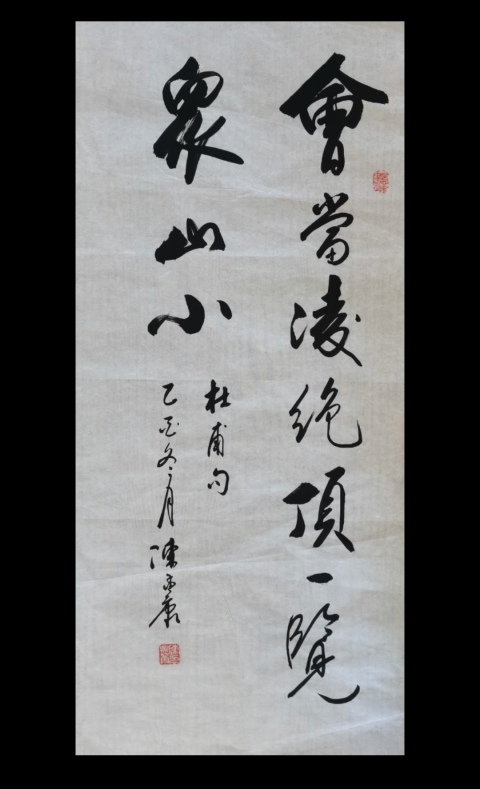 會當凌絕頂一覽
眾山小
杜甫句
乙酉冬月